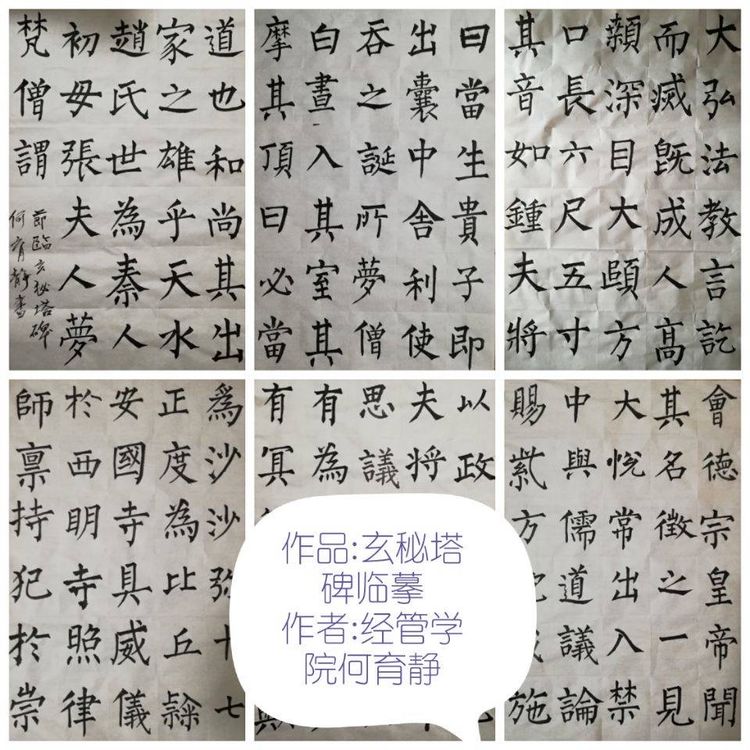 道也和尚其出
家之雄乎天水
趙氏世為秦人
初毋張夫人夢
梵僧謂
節臨玄秘塔碑
何育静書
曰當生貴子即
出囊中舍利使
吞之誕所夢僧
白晝入其室其
摩其頂曰必當
大弘法教言訖
而滅既成人高
顙深目大頤方
口長六尺五寸
其音如鍾夫將
爲沙沙弥十七
正度為比丘隸
安國寺具威儀
於西明寺照律
師禀持犯於崇
以政
夫將
思議
有為
有冥
會德宗皇帝聞
其名徵之一見
大悅常出入禁
中與儒道議論
賜紫方施
作品:玄秘塔
碑临摹
作者:经管学
院何育静